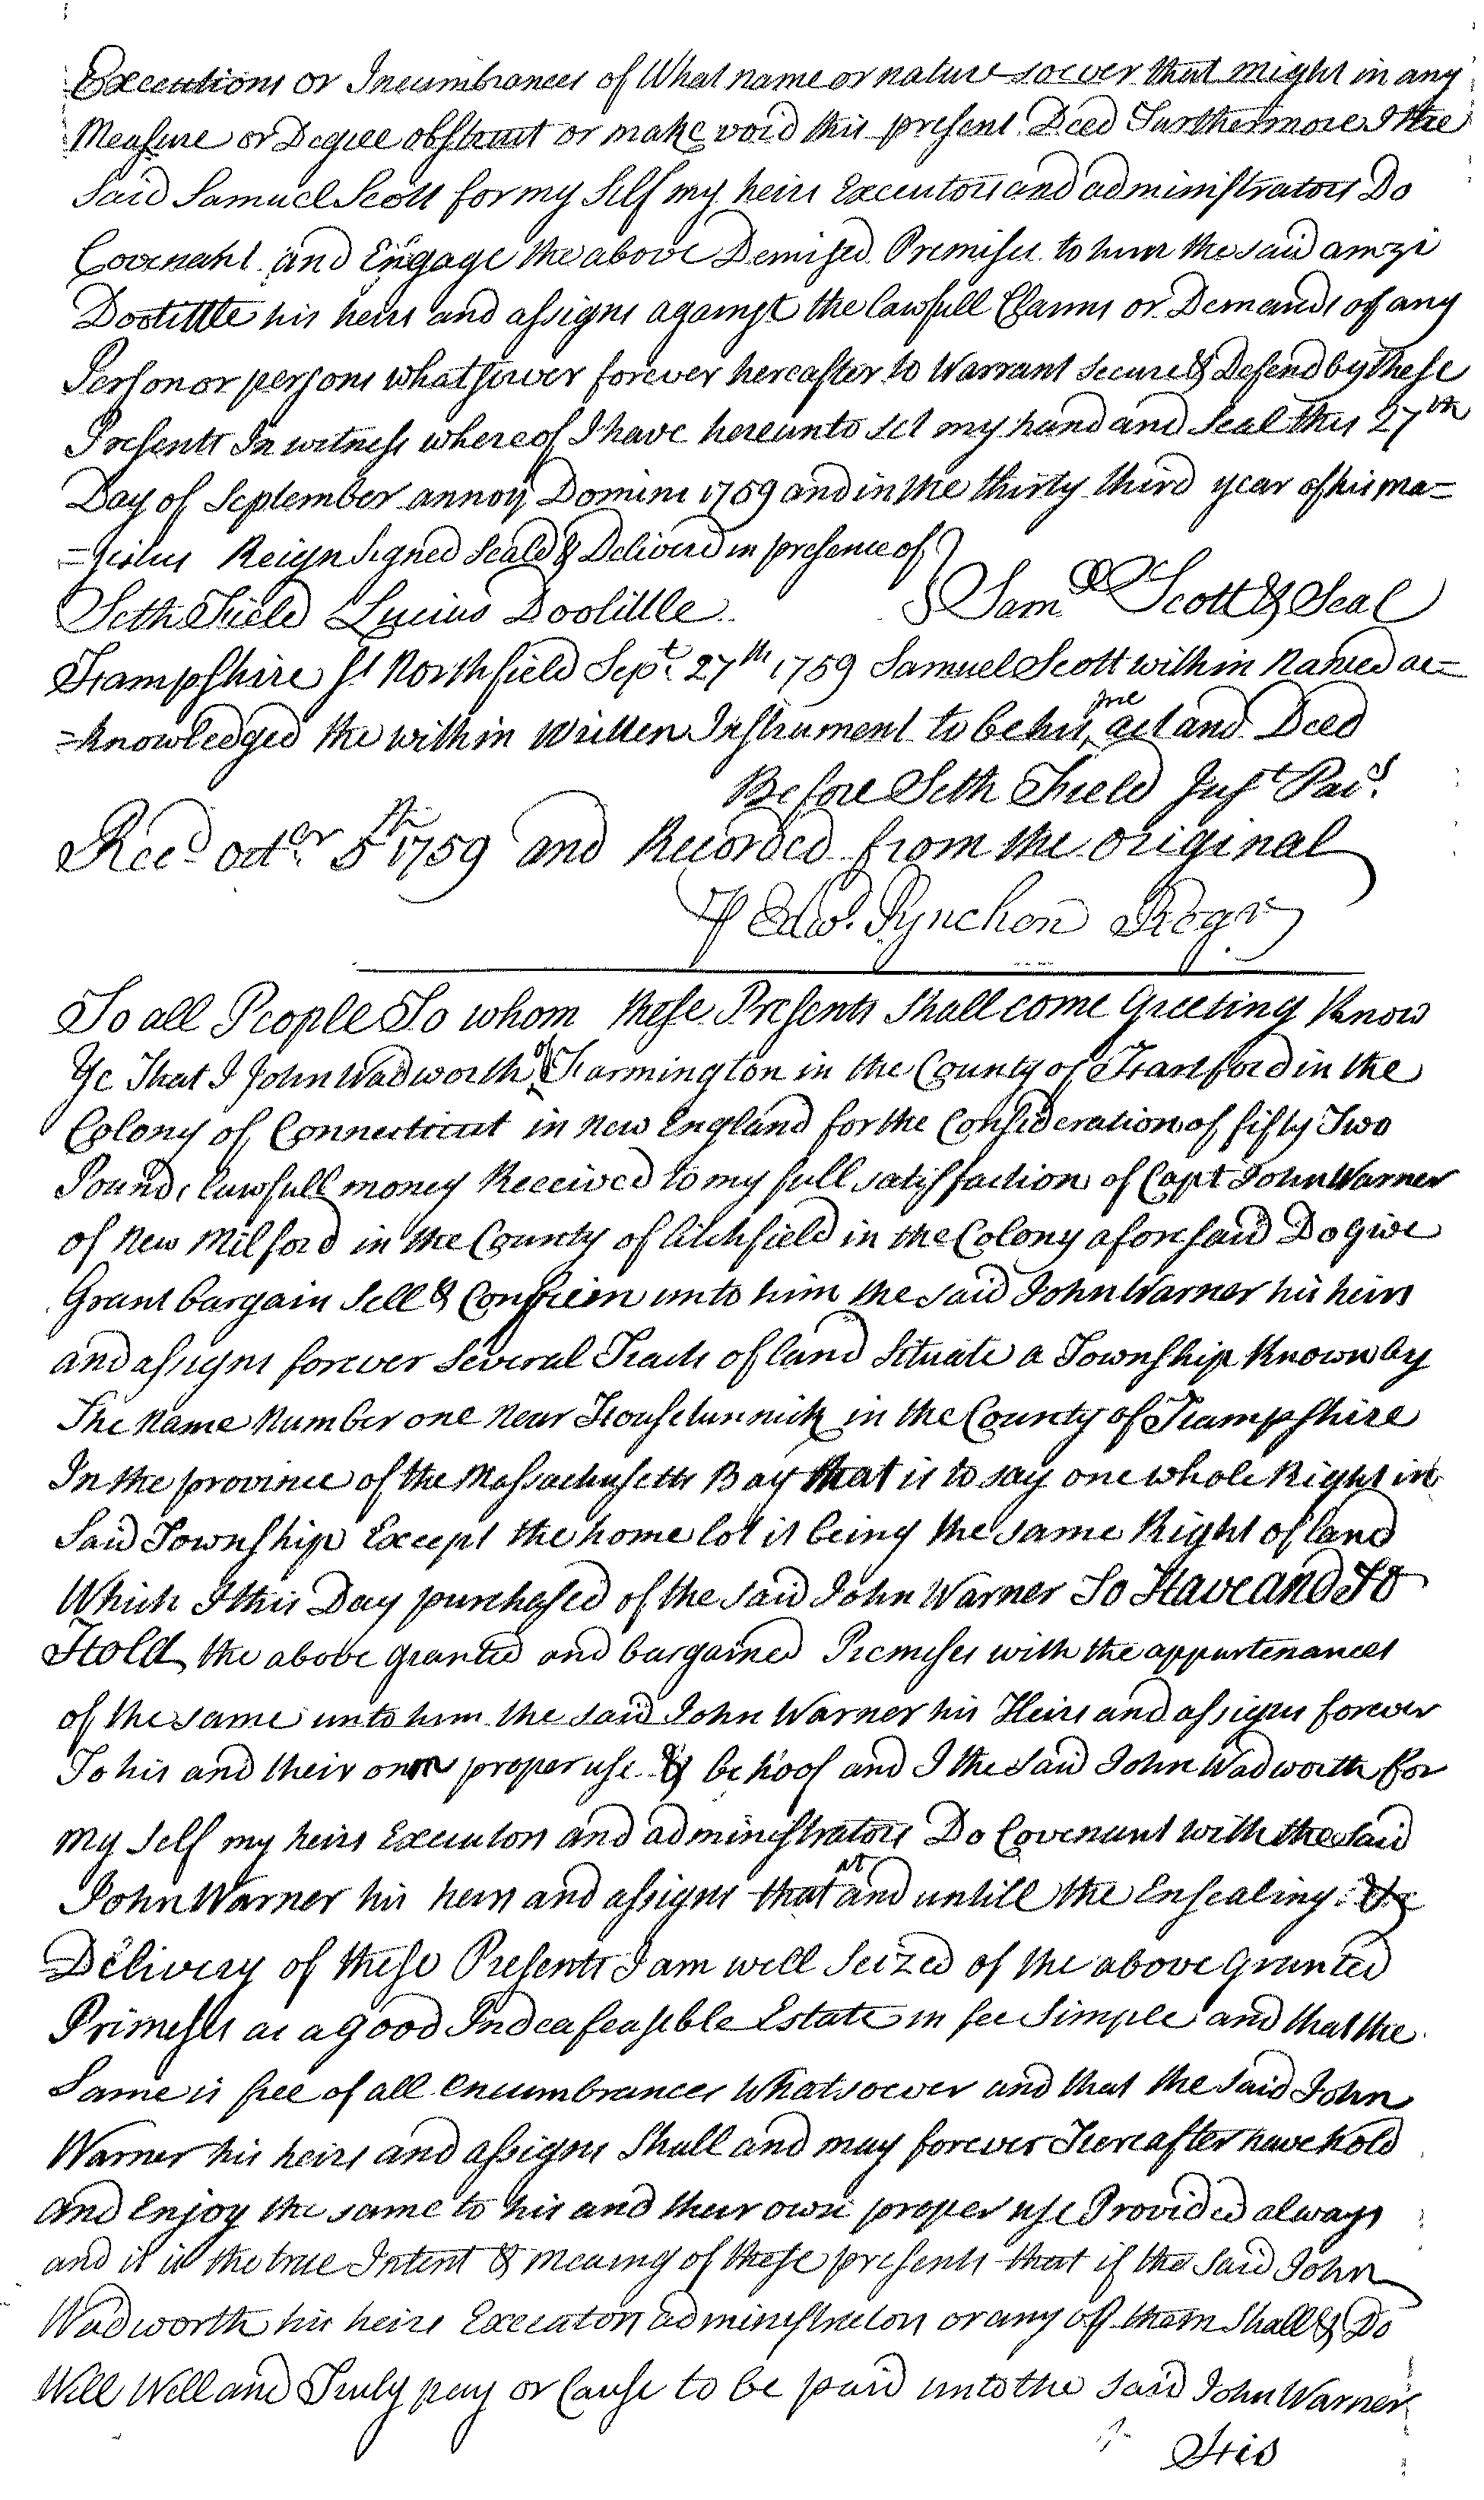 Executions or Incumbrances of What name or nature soever that might in any
Measure or Degree obstruct or make void this present Deed Furthermore I the
Said Samuel Scott for my Self my heirs Executors and administrators Do
Covenant and Engage the above Demised Premises to him the said amzi
Doolittle his heirs and assigns against the lawfull Claims or Demands of any
Person or persons whatsoever forever hereafter to Warrant Secure & Defend by these
Presents In witness whereof I have hereunto set my hand and Seal this 27th
Day of September annoq Domini 1759 and in the thirty third year of his ma=
=jesties Reign Signed Seald & Deliverd in presence of
Seth Field Lucius Doolittle Saml Scott & Seal
Hampshire ss Northfield Sept. 27th 1759 Samuel Scott within Named ac=
=knowledged the within Written Instrument to be his free act and Deed
Before Seth Field Just Pacs.
Recd octor 5th 1759 and Recorded from the original
⅌ Edwd. Pynchon Regr
To all People To whom these Presents Shall come Greeting Know
Ye That I John Wadworth of Farmington in the County of Hartford in the
Colony of Connecticut in New England for the Consideration of fifty Two
Pounds lawfull money Received to my full satisffaction of Capt John Warner
of New Milford in the County of Litchfield in the Colony aforesaid Do Give
Grant bargain Sell & Confirm unto him the said John Warner his heirs
and assigns forever Several Tracts of land Situate a Township Known by
The Name Number one Near Housetunnick in the County of Hampshire
In the province of the Massachusetts Bay that is to say one whole Right in
Said Township Except the home lot it being the same Right of land
Which I this Day purchased of the said John Warner To Have and To
Hold the above granted and bargained Premises with the appurtenances
of the same unto him the said John Warner his Heirs and assigns forever
To his and their own proper use & behoof and I the said John Wadworth for
my Self my heirs Executors and administrators Do Covenant with the said
John Warner his heirs and assigns that at and untill the Ensealing &
Delivery of these Presents I am well Seized of the above Granted
Primeses as a good Indeafeasible Estate in fee Simple and that the
Same is free of all Encumbrances Whatsoever and that the said John
Warner his heirs and assigns Shall and may forever Hereafter have hold
and Enjoy the same to his and their own proper use Provided always
and it is the true Intent & meaing of these presents that if the said John
Wadworth his heirs Executors administrators or any of them Shall & Do
Will Well and Truly pay or Cause to be paid unto the said John Warner
His